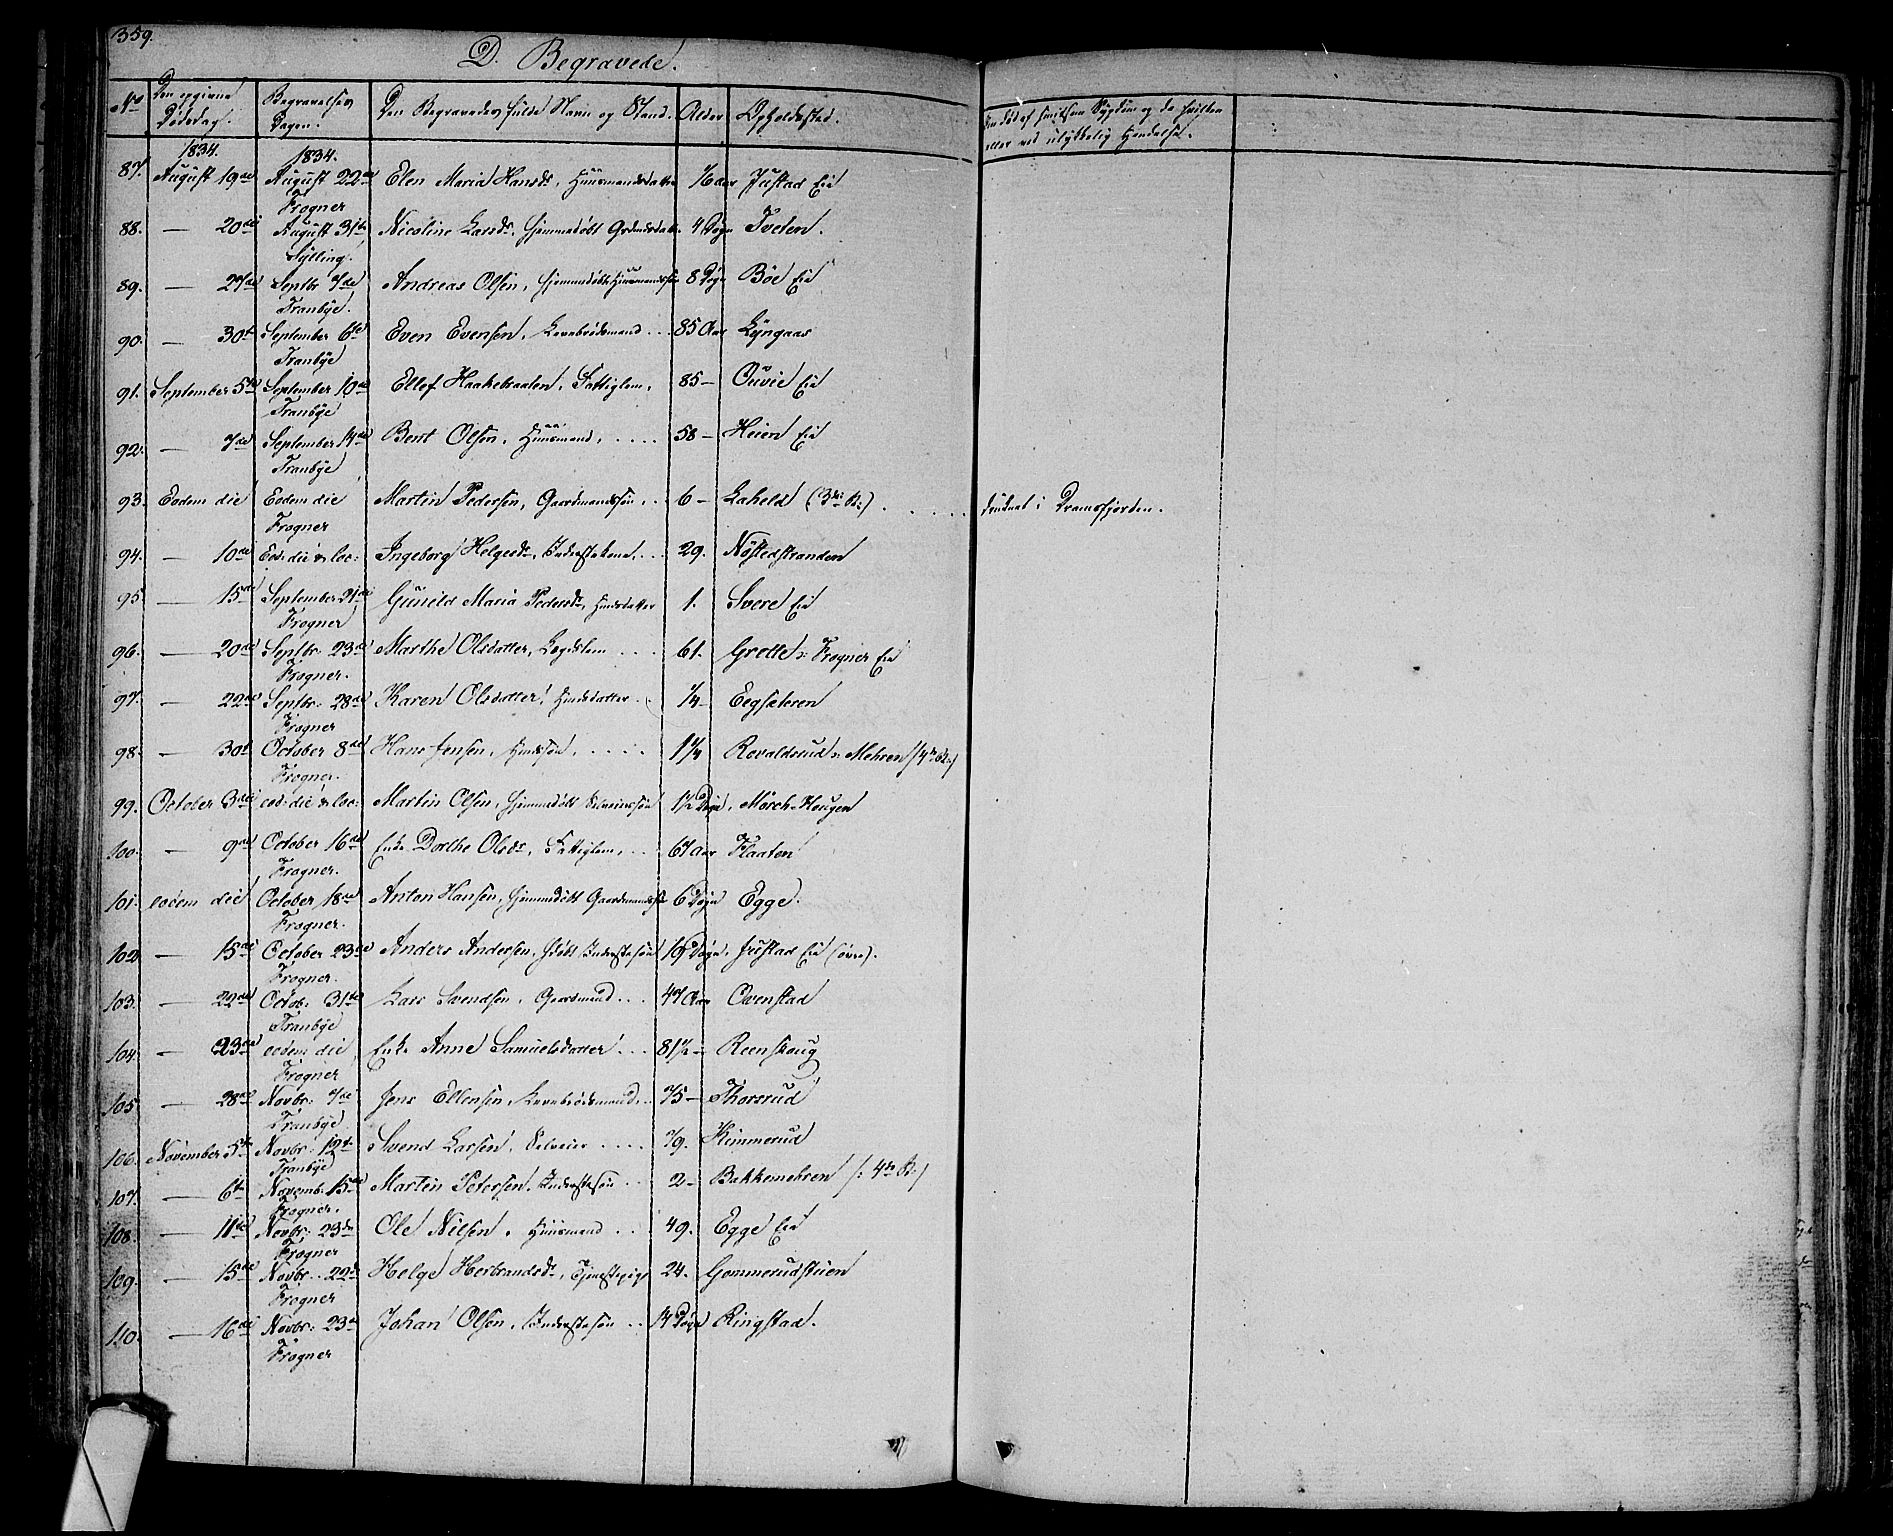 359.
D. Begravede.
No Den opgivne Dødsdag. Begravelses Dagen. Den Begravedes fulde Navn og Stand. Alder Opholdssted. Om død af smitsom Sygdom og da hvilken eller ved ulykkelig Hendelse.
1834. 1834.
87. August 19de August 22de Elen Maria Hansdr, Huusmandsdatter 16 aar Justad Eie
Frogner
88. — 20de August 31te Nicoline Larsdr, hjemmedøbt 4 Døgn Tveten.
Sylling.
89. — 27de Septbr 7de Andreas Olsen, hjemmedøbt Huusmandssøn 8 Døgn Böe Eie
Tranbye.
90. — 30te September 6te Even Evensen, Levebrødsmand . . . 85 Aar Lyngaas
Tranbye
91. September 5te September 10de Ellef Haakekaalen, Fattiglem, 85 — Ouvie Eie
Tranbye
92. — 7de September 14de Bent Olsen, Huusmand, . . . . 58 — Heien Eie
Tranbye
93. Eodem die Eodem die Martin Pedersen, Gaardmandssøn, . . 6 — Laheld (3die R:) . . . . druknet i Dramsfjorden.
Frogner
94. — 10de Eod: die & loc: Ingeborg Helgesdr, Inderstekone, . . . 29. Nøstedstranden
95 — 15de September 21de Gunild Maria Pedersdr, Huusdatter 1. Svere Eie
Frogner
96. — 20de Septbr. 23de Marthe Olsdatter, Lægdslem . . . . 61. Grette v: Frogner Eie
Frogner.
97. — 22de Septbr: 28de Karen Olsdatter, Huusdatter . . 1/4 — Eegsæteren
Frogner
98. — 30te October 8de Hans Jensen, Huussøn, . . . . . 1 1/4 Rovaldsrud v: Mehren /: 4de R:/
Frogner.
99. October 3die eod: die & loc: Martin Olsen, hjemmedøbt Selveiersøn 1 1/2 Døgn. Mörch-Haugen
100. — 9de October 16de Enke Dorthe Olsdr, Fattiglem, . . . 67 Aar Flaaten
Frogner.
101. eodem die October 18de Anton Hansen, hjemmedøbt Gaardmandssøn 6 Døgn Egge.
Frogner.
102 — 15de October 23de Anders Andersen, hdøbt Inderstesøn 19 Døgn, Justad Eie (øvre).
Frogner.
103. — 22de Octob: 31te Lars Svendsen, Gaardmand . . . 47 Aar Ovenstad
Tranbye
104. — 23de eodem die Enke Anne Samuelsdatter . . . 81 1/2 — Reenskoug
Frogner
105 — 28de Novbr: 7de Jens Ellensen, Levebrødsmand, . . 75 — Thorsrud
Tranbye
106. November 5te Novbr: 12te Svend Larsen, Selveier . . . . . 79. Kimmerud
Tranbye
107. — 6te Novemb: 15de Martin Petersen, Inderstesøn . . 2 — Bakkemehren /: 4de R:/
Frogner.
108. — 11te Novbr: 23de Ole Nilsen, Huusmand . . . 49. Egge Eie
Frogner
109. — 15de Novbr. 22de Helge Herbrandsdr, Tjenestepige 24. Gommerudstuen
Frogner
110. — 16de Novbr: 23de Johan Olsen, Inderstesøn . . 14 Døgn Ringstad.
Frogner